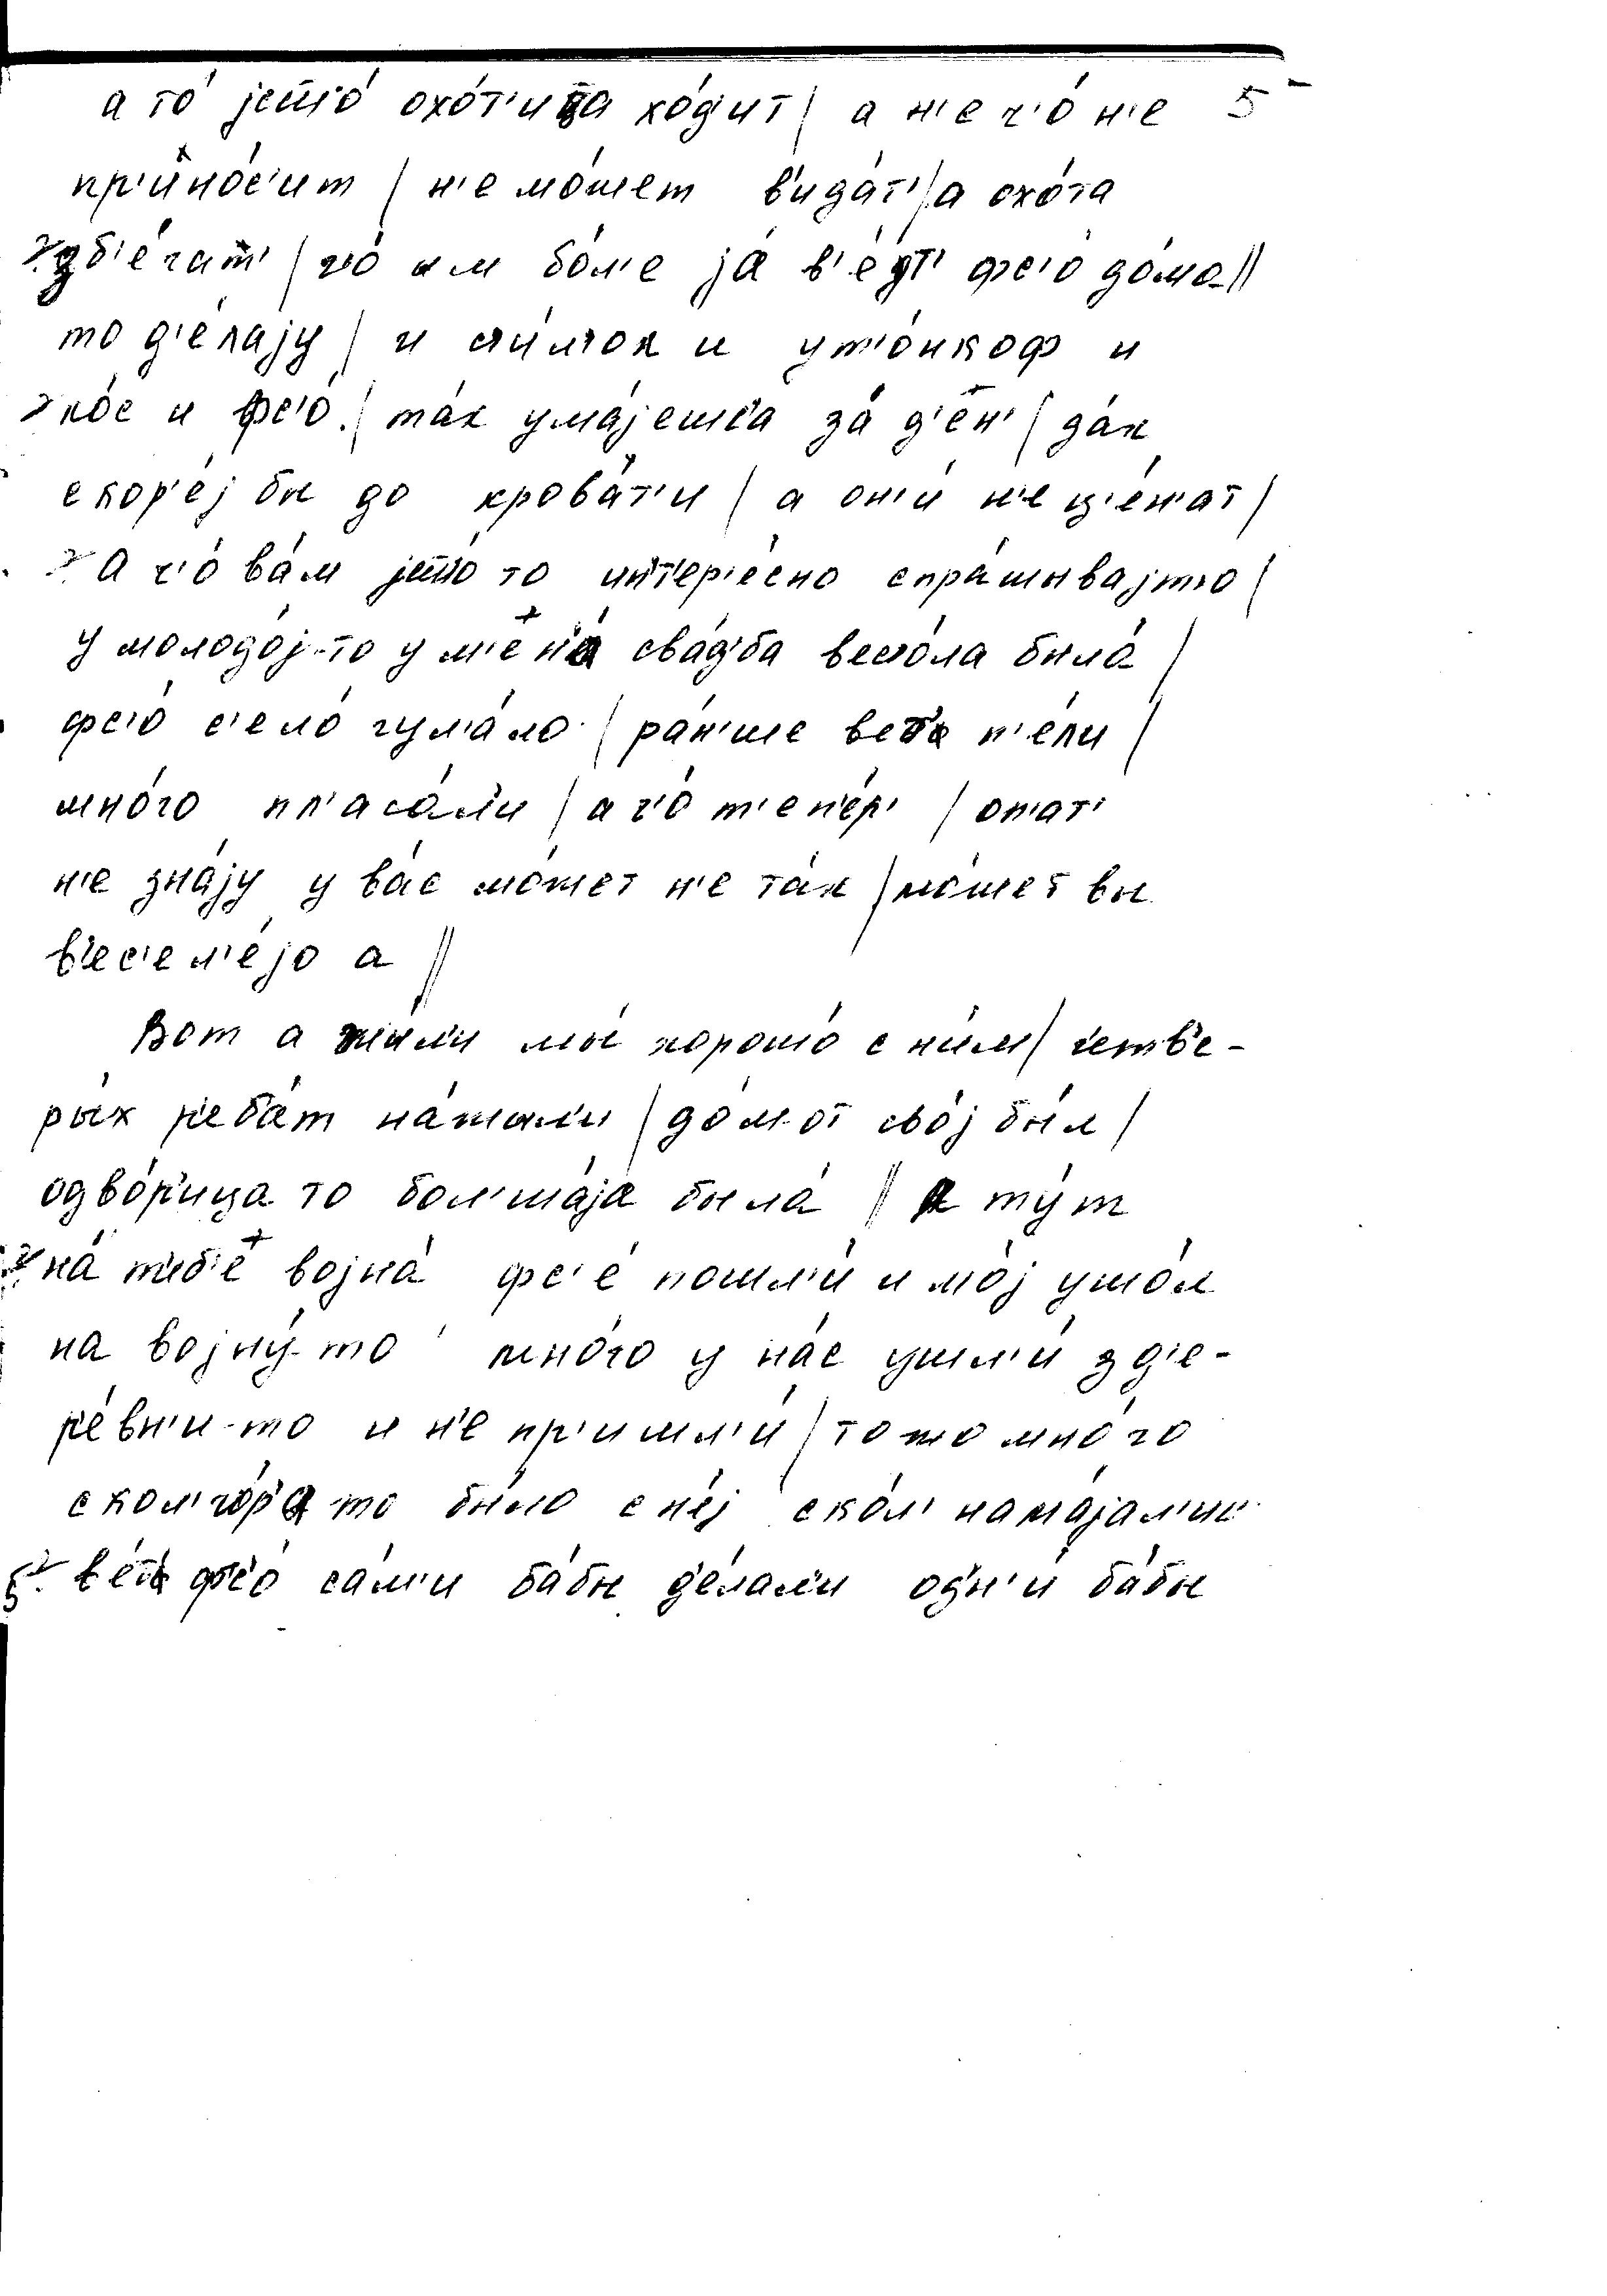 а то́ јешшо́ охо́т'ица хо́д'ит | а н'е ч'о́ н'е 5
пр'ино́с'ит | н'е мо́жет в'ида́т' | а охо́та
б'е́гат' | ч'о́ им бо́л'е ја́ в'е́дт' фс'о́ до́ма ||
то д'е́лају | и и ут'о́нкоф и
ко́с и фс'о́. | та́к ума́јешс'а за́ д'е́н' | да́к
скор'е́ј бы до крова́т'и | а он'и́ н'е ц'е́н'ат |
а ч'о́ ва́м јешшо́ то инт'ер'е́сно спра́шывајт'о |
у молодо́ј-то у м'ен'а́ сва́д'ба вес'о́ла была́ |
фс'о́ с'ело́ гул'а́ло | ра́н'ше вет' п'е́ли |
мно́го пл'аса́л'и | а ч'о́ т'еп'е́р' | оп'ат'
н'е зна́ју у ва́с мо́жет н'е та́к | мо́жет вы
в'ес'ел'е́јо а ||
Вот а жы́л'и мы́ хорошо́ с ни́м | четв'е-
ры́х р'еб'а́т на́жыл'и | до́м-от сво́ј бы́л |
одво́р'ица то бол'ша́ја была́ || а ту́т
на́ т'иб'е́ војна́ фс'е́ пошл'и́ и мо́ј ушо́л
на војну́-то мно́го у на́с ушл'и́ з д'е-
р'е́вн'и-то и н'е пр'ишл'и́ | то жо мно́го
скол' го́р'а то бы́ло с н'е́ј ско́л' нама́јал'ис'
в'е́т' фс'о́ са́м'и ба́бы д'е́лал'и одн'и́ ба́бы